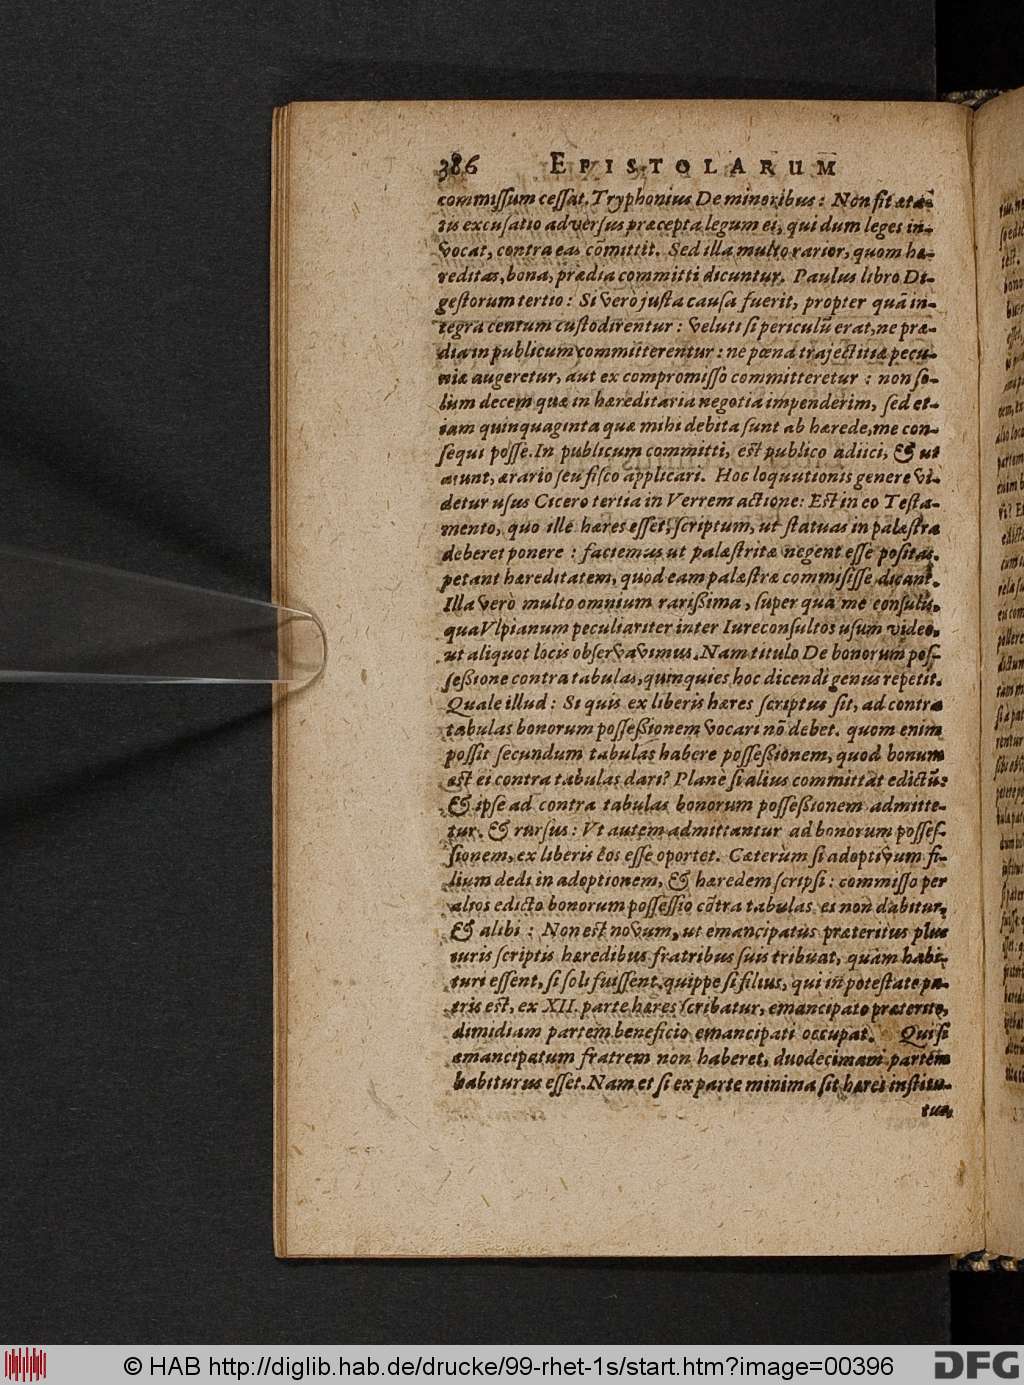 386 EPISTOLARUM
commiſſum ceſſat. Tryphonius De minoribus: Non ſit ætā-
tis excuſatio adverſus præcepta legum ei, qui dum leges in-
vocat, contra eas cōmittit. Sed illa multo rarior, quom hæ-
reditas, bona, prædia committi dicuntur. Paulus libro Di-
geſtorum tertio: Si verò juſta cauſa fuerit, propter quā in-
tegra centum cuſtodirentur: veluti ſi periculū erat, ne præ-
dia in publicum committerentur: ne pœna trajectitiæ pecu-
niæ augeretur, aut ex compromiſſo committeretur: non ſo-
lùm decem quæ in hæreditaria negotia impenderim, ſed et-
iam quinquaginta quæ mihi debita ſunt ab hærede, me con-
ſequi poſſe. In publicum committi, eſt publico adiici, & ut
aiunt, ærario ſeu fiſco applicari. Hoc loquutionis genere vi-
detur uſus Cicero tertia in Verrem actione: Eſt in eo Teſta-
mento, quo ille hæres eſſet, ſcriptum, ut ſtatuas in palæſtra
deberet ponere: faciemus ut palæſtritæ negent eſſe poſitas.
petant hæreditatem, quod eam palæſtræ commiſiſſe dicant.
Illa verò multo omnium rarißima, ſuper qua me conſulis,
qua Vlpianum peculiariter inter Iureconſultos uſum video,
ut aliquot locis obſervavimus. Nam titulo De bonorum poſ-
ſeßione contra tabulas, quinquies hoc dicendi genus repetit.
Quale illud: Si quis ex liberis hæres ſcriptus ſit, ad contra
tabulas bonorum poſſeßionem vocari nō debet. quom enim
poſſit ſecundum tabulas habere poſſeßionem, quod bonum
eſt ei contra tabulas dari? Planè ſi alius committat edictū:
& ipſe ad contra tabulas bonorum poſſeßionem admitte-
tur. & rurſus: Vt autem admittantur ad bonorum poſſeſ-
ſionem, ex liberis eos eſſe oportet. Cæterùm ſi adoptivum fi-
lium dedi in adoptionem, & hæredem ſcripſi: commiſſo per
alios edicto bonorum poſſeſſio cōtra tabulas ei non dabitur.
& alibi: Non eſt novum, ut emancipatus præteritus plus
iuris ſcriptis hæredibus fratribus ſuis tribuat, quàm habi-
turi eſſent, ſi ſoli fuiſſent. quippe ſi filius, qui in poteſtate pa-
tris eſt, ex XII. parte hæres ſcribatur, emancipato præterito,
dimidiam partem beneficio emancipati occupat. Qui ſi
emancipatum fratrem non haberet, duodecimam partem
habiturus eſſet. Nam et ſi ex parte minima ſit hæres inſtitu-
tus,
© HAB http://diglib.hab.de/drucke/99-rhet-1s/start.htm?image=00396
DFG